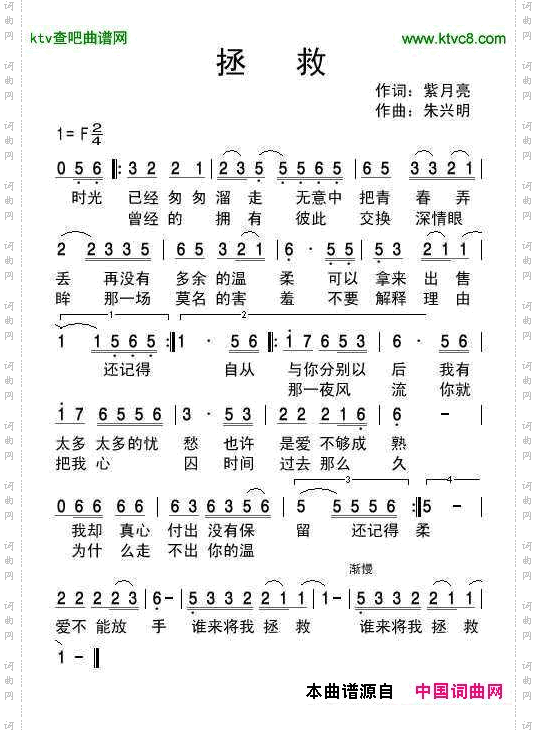 ktv查吧曲谱网
www.ktvc8.com
拯 救
作词：紫月亮
作曲：朱兴明
1=F 2/4
0 5 6 ‖: 3 2 2 1 | 2 3 5 5 5 5 6 5 | 6 5 3 3 2 1 |
时光 已经 匆匆 溜走 无意中 把青 春弄
曾经的 拥有 彼此 交换 深情眼
2 2 3 3 5 | 6 5 6 3 2 1 | 6 · 6 5 | 5 3 2 1 1 |
丢 再没有 多余 的温 柔 可以 拿来 出售
眸 那一场 莫名 的害 羞 不要 解释 理由
1
2
1 1 5 6 5 :‖ 1 · 5 6 ‖: 1 7 6 5 3 | 6 · 5 6 |
还记得 自从 与你分别以 后 我有
那一夜风 流 你就
1 7 6 5 5 6 | 3 · 5 3 | 2 2 2 2 1 6 | 6 – |
太多 太多的忧 愁 也许 是爱 不够成 熟
把我 心 囚 时间 过去 那么 久
3
4
0 6 6 6 6 | 6 6 3 6 3 5 | 5 5 5 5 6 5 :‖ 5 – |
我却 真心 付出 没有保 留 还记得 柔
为什 么走 不出 你的温
渐慢
2 2 2 2 2 3 | 6 – | 5 3 3 2 2 1 | 1 – | 5 3 3 2 2 1 |
爱不 能放 手 谁来将我 拯 救 谁来将我 拯 救
1 – ‖
本曲谱源自
中国词曲网